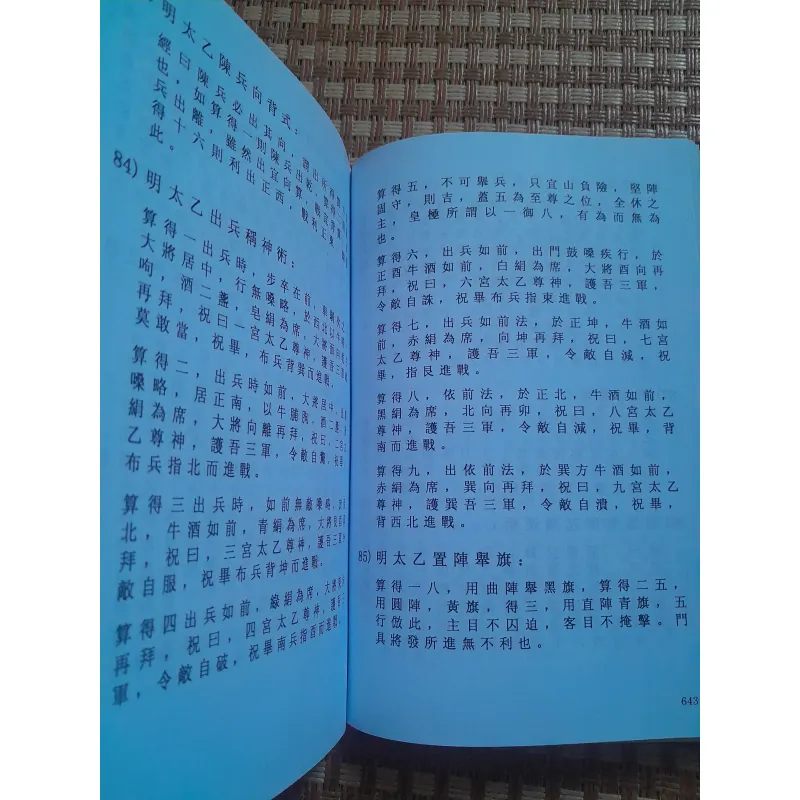 明太乙陳兵向背式：
經曰陳兵必出其向，
也，如算得一則陳兵出乾，
兵出離，雖然出宜向算，
得十六則利出正西，
此。
84) 明太乙出兵稱神術：
算得一出兵時，步卒在前，
大將居中，行無嗓略，於西北
哅，酒二盞，皂絹為席，大將
再拜，祝曰一宮太乙尊神，護吾三
莫敢當，祝畢，布兵背巽而進戰。
算得二，出兵時如前，大將居中，
嗓略，居正南，以牛脯
絹為席，大將向離再拜，祝曰，
乙尊神，護吾三軍，令敵自
布兵指北而進戰。
算得三出兵時，如前無敵嗓略，
北，牛酒如前，青絹為席，大將
拜，祝曰，三宮太乙尊神，護吾三
敵自服，祝畢布兵背坤而進戰。
算得四出兵如前，綠絹為席，大將
再拜，祝曰，四宮太乙尊神，護吾三
軍，令敵自破，祝畢南兵指酉而進戰。
算得五，不可舉兵，只宜山負險，堅陣
固守，則吉，蓋五為至尊之位，全休之
主，皇極所謂以一御八，有為而無為
也。
算得六，出兵如前，出門鼓嗓疾行，於
正酉牛酒如前，白絹為席，大將酉向再
拜，祝曰，六宮太乙尊神，護吾三軍，
令敵自誅，祝畢布兵指東進戰。
算得七，出兵如前法，於正坤，牛酒如
前，赤絹為席，向坤再拜，祝曰，七宮
太乙尊神，護吾三軍，令敵自減，祝
畢，指艮進戰。
算得八，依前法，於正北，牛酒如前，
黑絹為席，北向再卯，祝曰，八宮太乙
尊神，護吾三軍，令敵自減，祝畢，背
南而進戰。
算得九，出依前法，於巽方牛酒如前，
赤絹為席，巽向再拜，祝曰，九宮太乙
尊神，護巽吾三軍，令敵自潰，祝畢，
背西北進戰。
85) 明太乙置陣舉旗：
算得一八，用曲陣舉黑旗，算得二五，
用圓陣，黃旗，得三，用直陣青旗，五
行倣此，主目不囚迫，客目不掩擊。門
具將發所進無不利也。
643